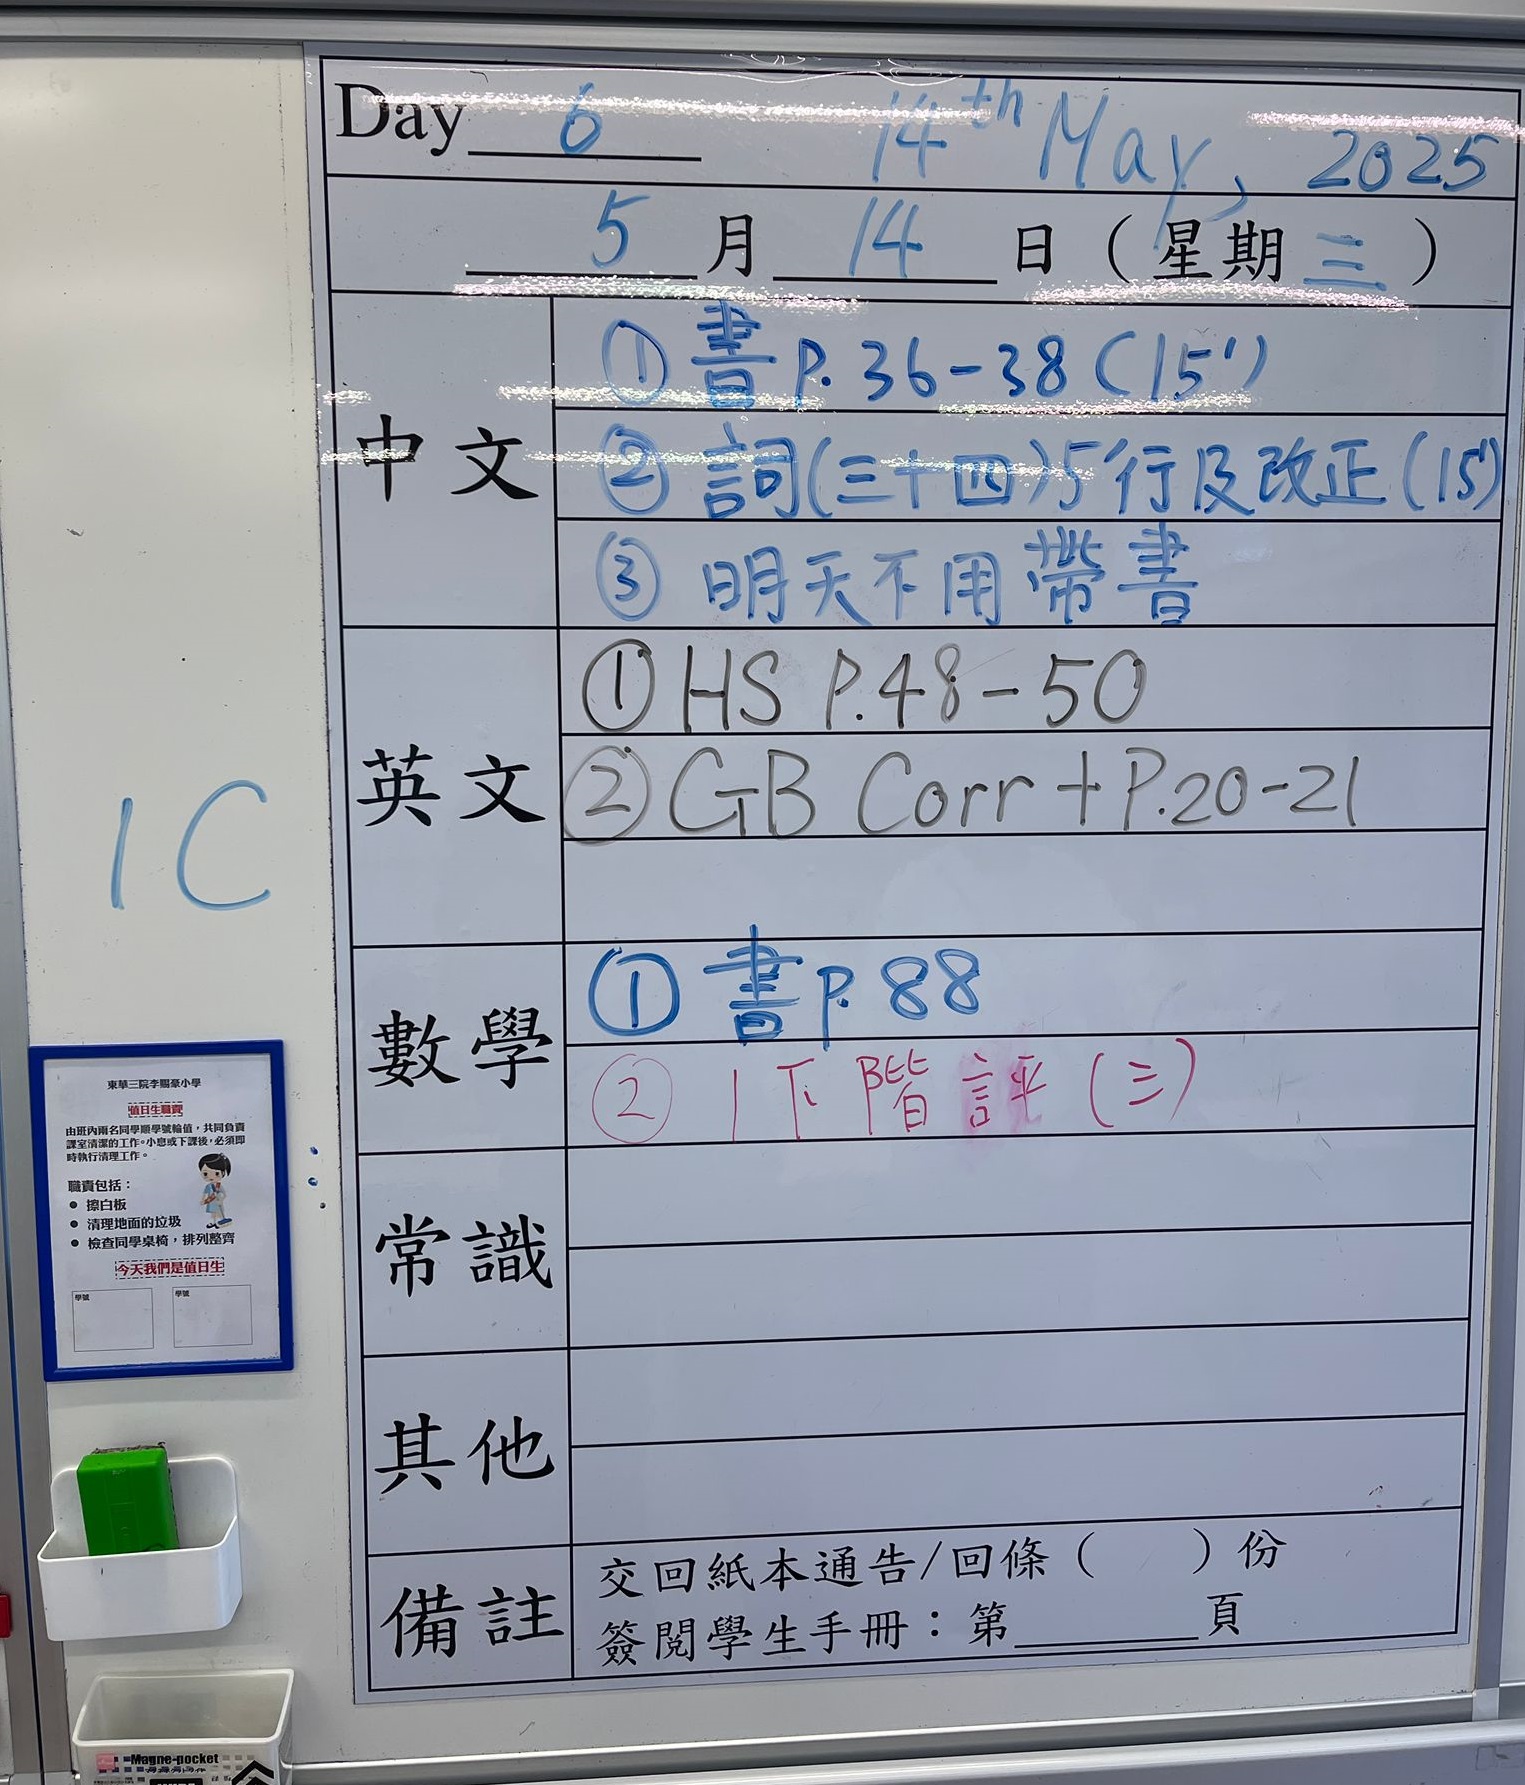 Day 6 14th May, 2025
5 月 14 日 ( 星期 三 )
中文
① 書 P. 36-38 (15')
② 詞(三十四)5行及改正 (15')
③ 明天不用帶書
英文
① HS P.48-50
② GB Corr + P.20-21
數學
① 書 P. 88
② 1下階評(三)
常識
其他
備註
交回紙本通告/回條 ( ) 份
簽閱學生手冊：第 頁
1C
東華三院李賜豪小學
值日生職責
由班內兩名同學順學號輪值，共同負責
課室清潔的工作。小息或下課後，必須即
時執行清理工作。
職責包括：
● 擦白板
● 清理地面的垃圾
● 檢查同學桌椅，排列整齊
今天我們是值日生
學號 學號
Magne-pocket